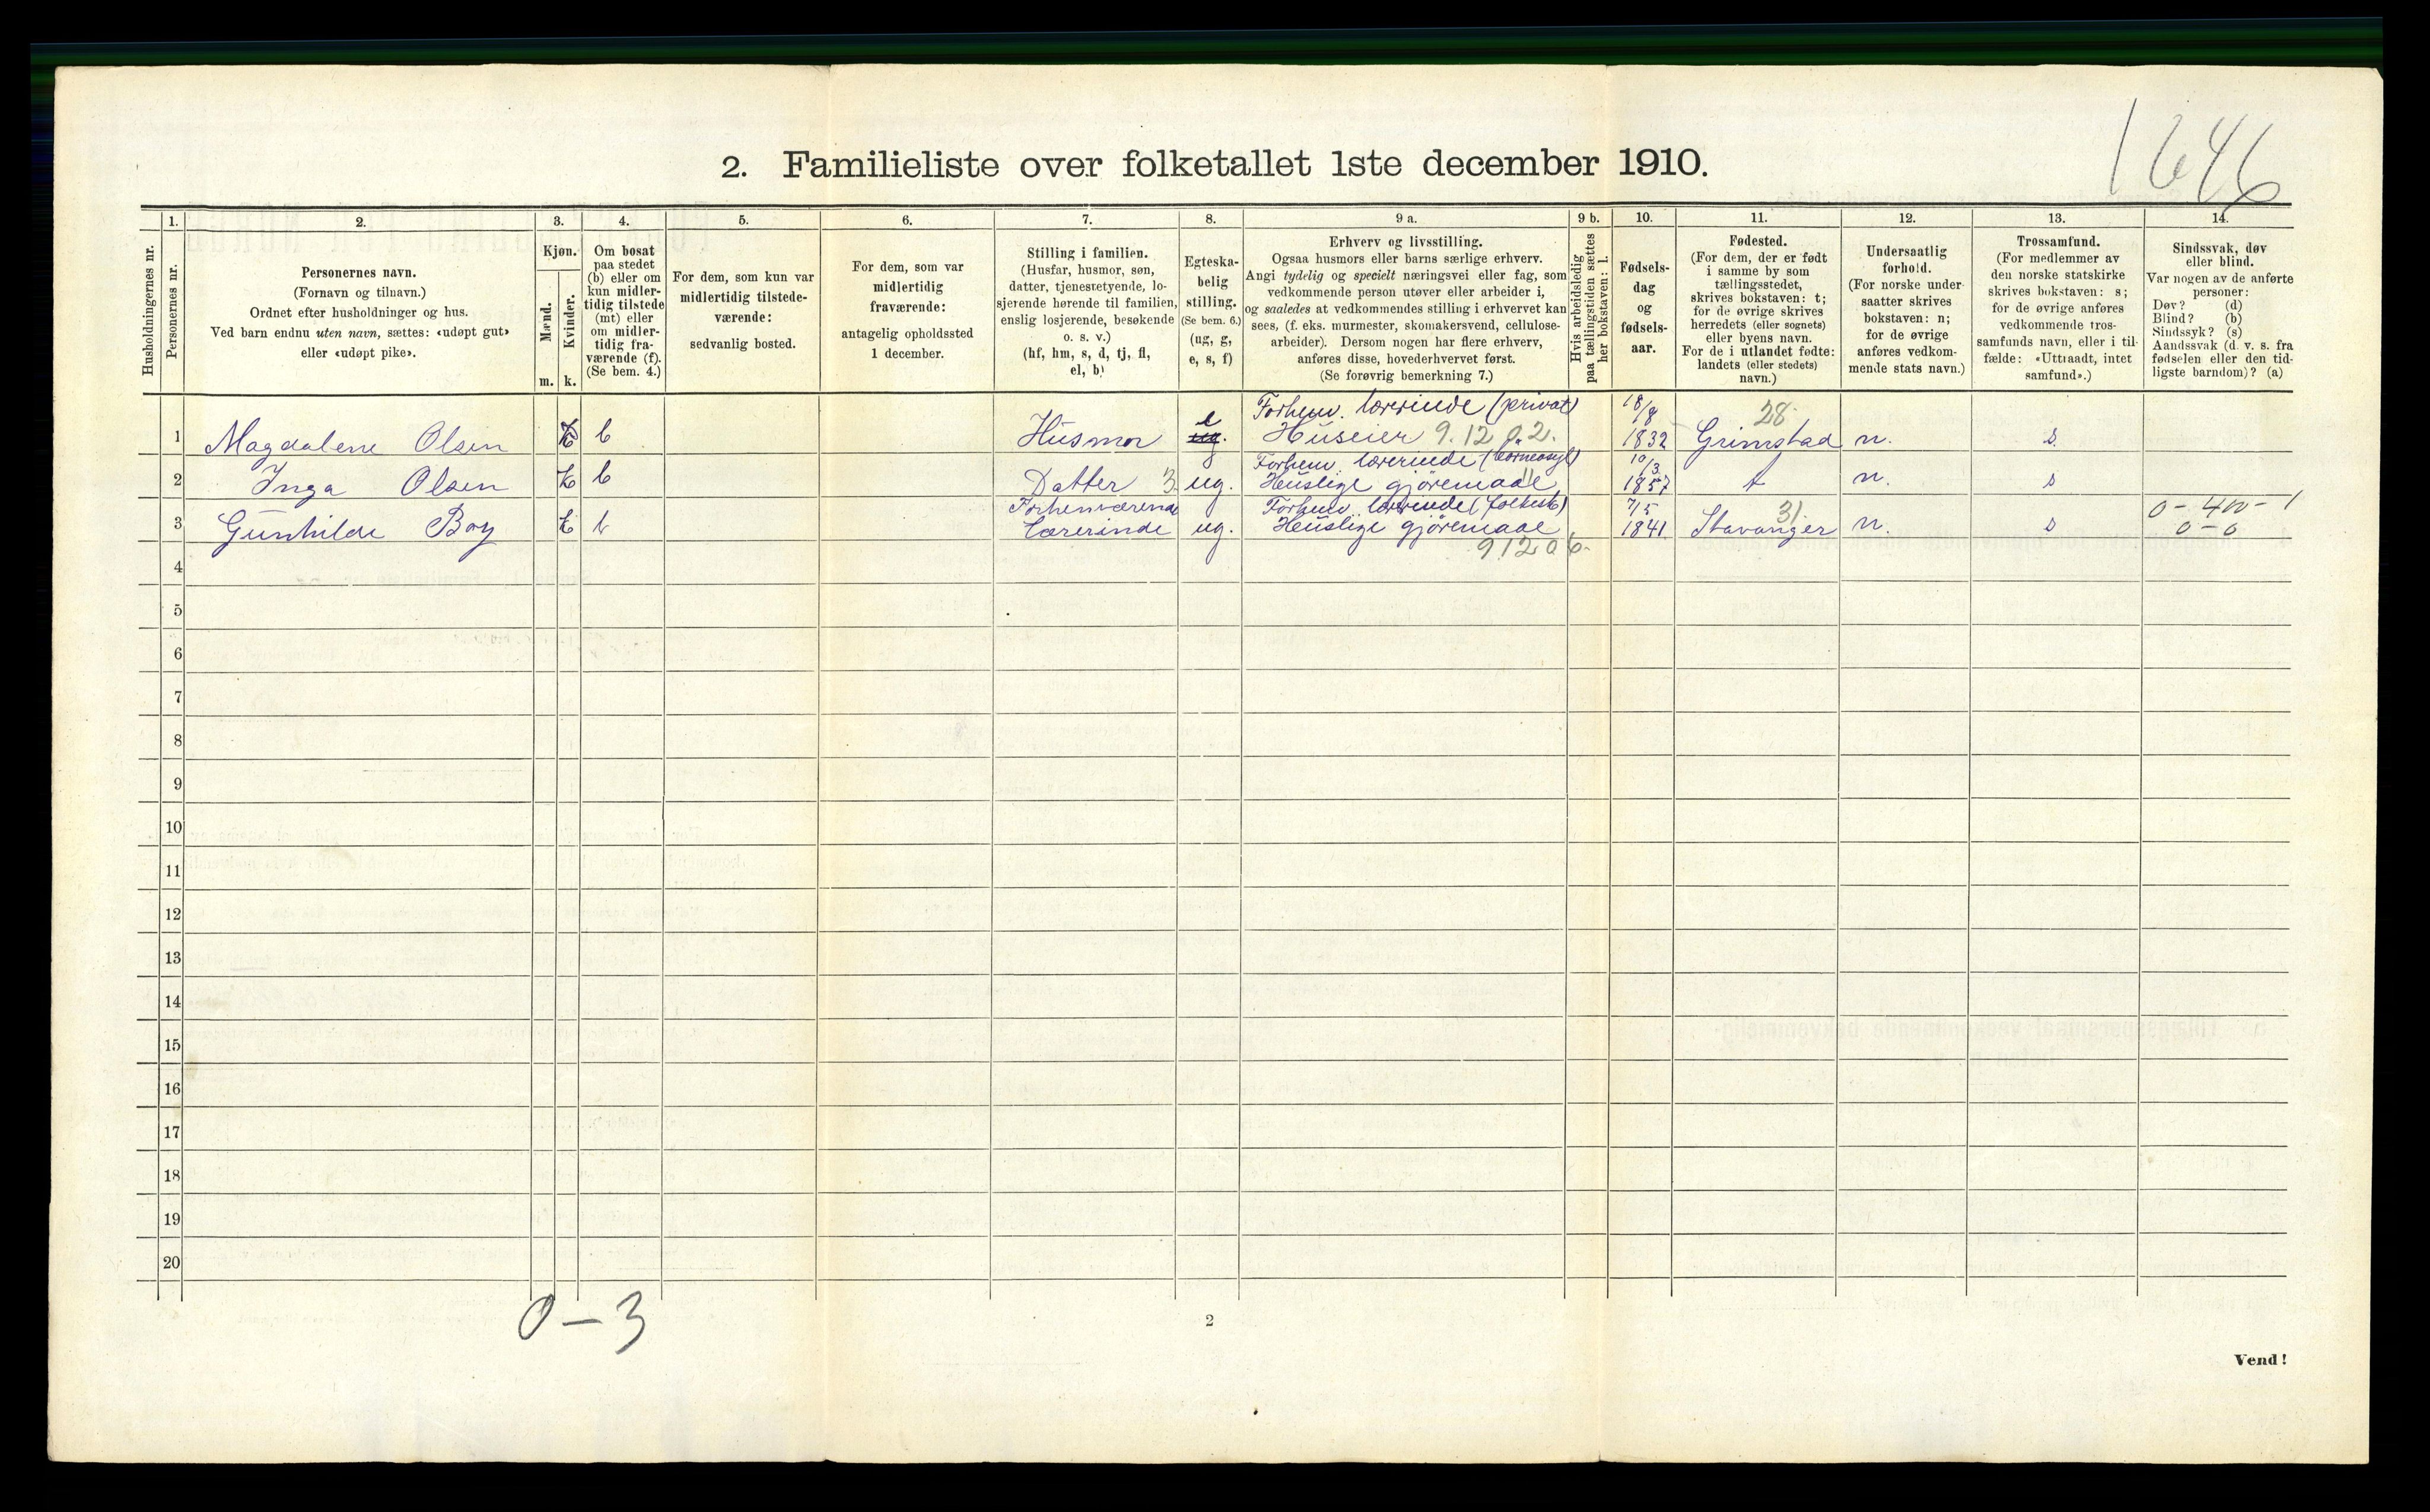 1646
2. Familieliste over folketallet 1ste december 1910.
Husholdningernes nr.
1.
Personernes nr.
2.
Personernes navn.
(Fornavn og tilnavn.)
Ordnet efter husholdninger og hus.
Ved barn endnu uten navn, sættes: «udøpt gut»
eller «udøpt pike».
3.
Kjøn.
Mænd.
Kvinder.
m. k.
4.
Om bosat
paa stedet
(b) eller om
kun midler-
tidig tilstede
(mt) eller
om midler-
tidig fra-
værende (f).
(Se bem. 4.)
5.
For dem, som kun var
midlertidig tilstede-
værende:
sedvanlig bosted.
6.
For dem, som var
midlertidig
fraværende:
antagelig opholdssted
1 december.
7.
Stilling i familien.
(Husfar, husmor, søn,
datter, tjenestetyende, lo-
sjerende hørende til familien,
enslig losjerende, besøkende
o. s. v.)
(hf, hm, s, d, tj, fl,
el, b)
8.
Egteska-
belig
stilling.
(Se bem. 6.)
(ug, g,
e, s, f)
9 a.
Erhverv og livsstilling.
Ogsaa husmors eller barns særlige erhverv.
Angi tydelig og specielt næringsvei eller fag, som
vedkommende person utøver eller arbeider i,
og saaledes at vedkommendes stilling i erhvervet kan
sees, (f. eks. murmester, skomakersvend, cellulose-
arbeider). Dersom nogen har flere erhverv,
anføres disse, hovederhvervet først.
(Se forøvrig bemerkning 7.)
9 b.
Hvis arbeidsledig
paa tællingstiden sættes
her bokstaven: l.
10.
Fødsels-
dag
og
fødsels-
aar.
11.
Fødested.
(For dem, der er født
i samme by som
tællingsstedet,
skrives bokstaven: t;
for de øvrige skrives
herredets (eller sognets)
eller byens navn.
For de i utlandet fødte:
landets (eller stedets)
navn.)
12.
Undersaatlig
forhold.
(For norske under-
saatter skrives
bokstaven: n;
for de øvrige
anføres vedkom-
mende stats navn.)
13.
Trossamfund.
(For medlemmer av
den norske statskirke
skrives bokstaven: s;
for de øvrige anføres
vedkommende tros-
samfunds navn, eller i til-
fælde: «Uttraadt, intet
samfund».)
14.
Sindssvak, døv
eller blind.
Var nogen av de anførte
personer:
Døv? (d)
Blind? (b)
Sindssyk? (s)
Aandssvak (d. v. s. fra
fødselen eller den tid-
ligste barndom)? (a)
Forhenv. lærerinde (privat) 18/8 28.
1 Magdalene Olsen k b Husmor ug. e Huseier 9.12 0.2. 1832 Grimstad n. s.
Forhenv. lærerinde 10/3
2 Inga Olsen k b Datter 3 ug. Huslige gjøremaal 1857 t n. s
Forhenværende Forhenv. lærerinde 7/5 31. 0 - 400 - 1
3 Gunhilde Boy k b Lærerinde ug. Huslige gjøremaal 1841 Stavanger n. s 0 - 0
9.12 0 6.
4
5
6
7
8
9
10
11
12
13
14
15
16
17
18
19
20
0 - 3
2
Vend!